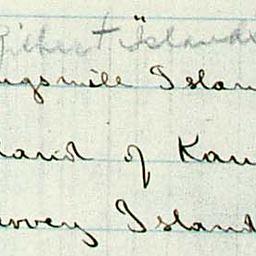 Gilbert + "Islands
ngsmill Islan
land of Kau
rvey Island